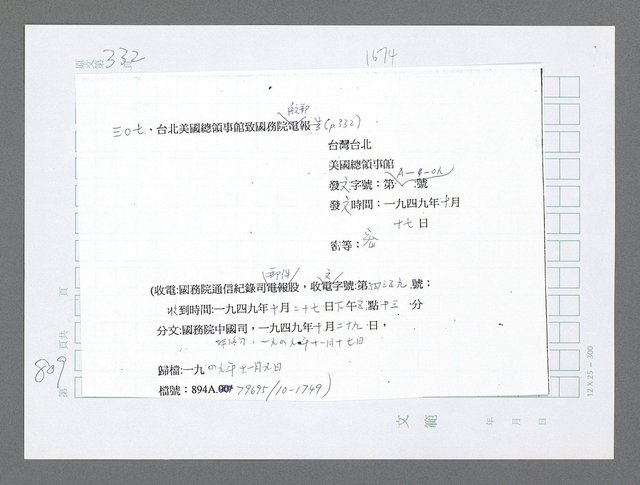 原文第332頁
1674
三〇七、台北美國總領事館致國務院電報告(p.332)
台灣台北
美國總領事館
發文字號:第 號
發文時間:一九四九年十月
十七日
密等:密
郵件 文
(收電:國務院通信紀錄司電報股,收電字號:第四三五九號;
收到時間:一九四九年十月二十七日下午 點十三分
分文:國務院中國司,一九四九年十月二十九日,
一九四九年十一月十七日
歸檔:一九四九年十一月九日
檔號:894A.00/79695/10-1749)
809
第 頁共 頁
文範
年 月 日
12 X 25 = 300